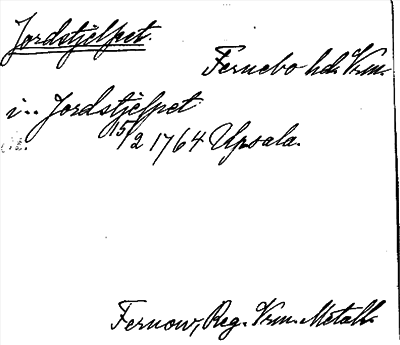 Jordstjelpet.
Fernebo hd. Vrm.
i.. Jordstjelpet
15/2 1764 Upsala.
Fernow, Reg. Vrm. Metall.